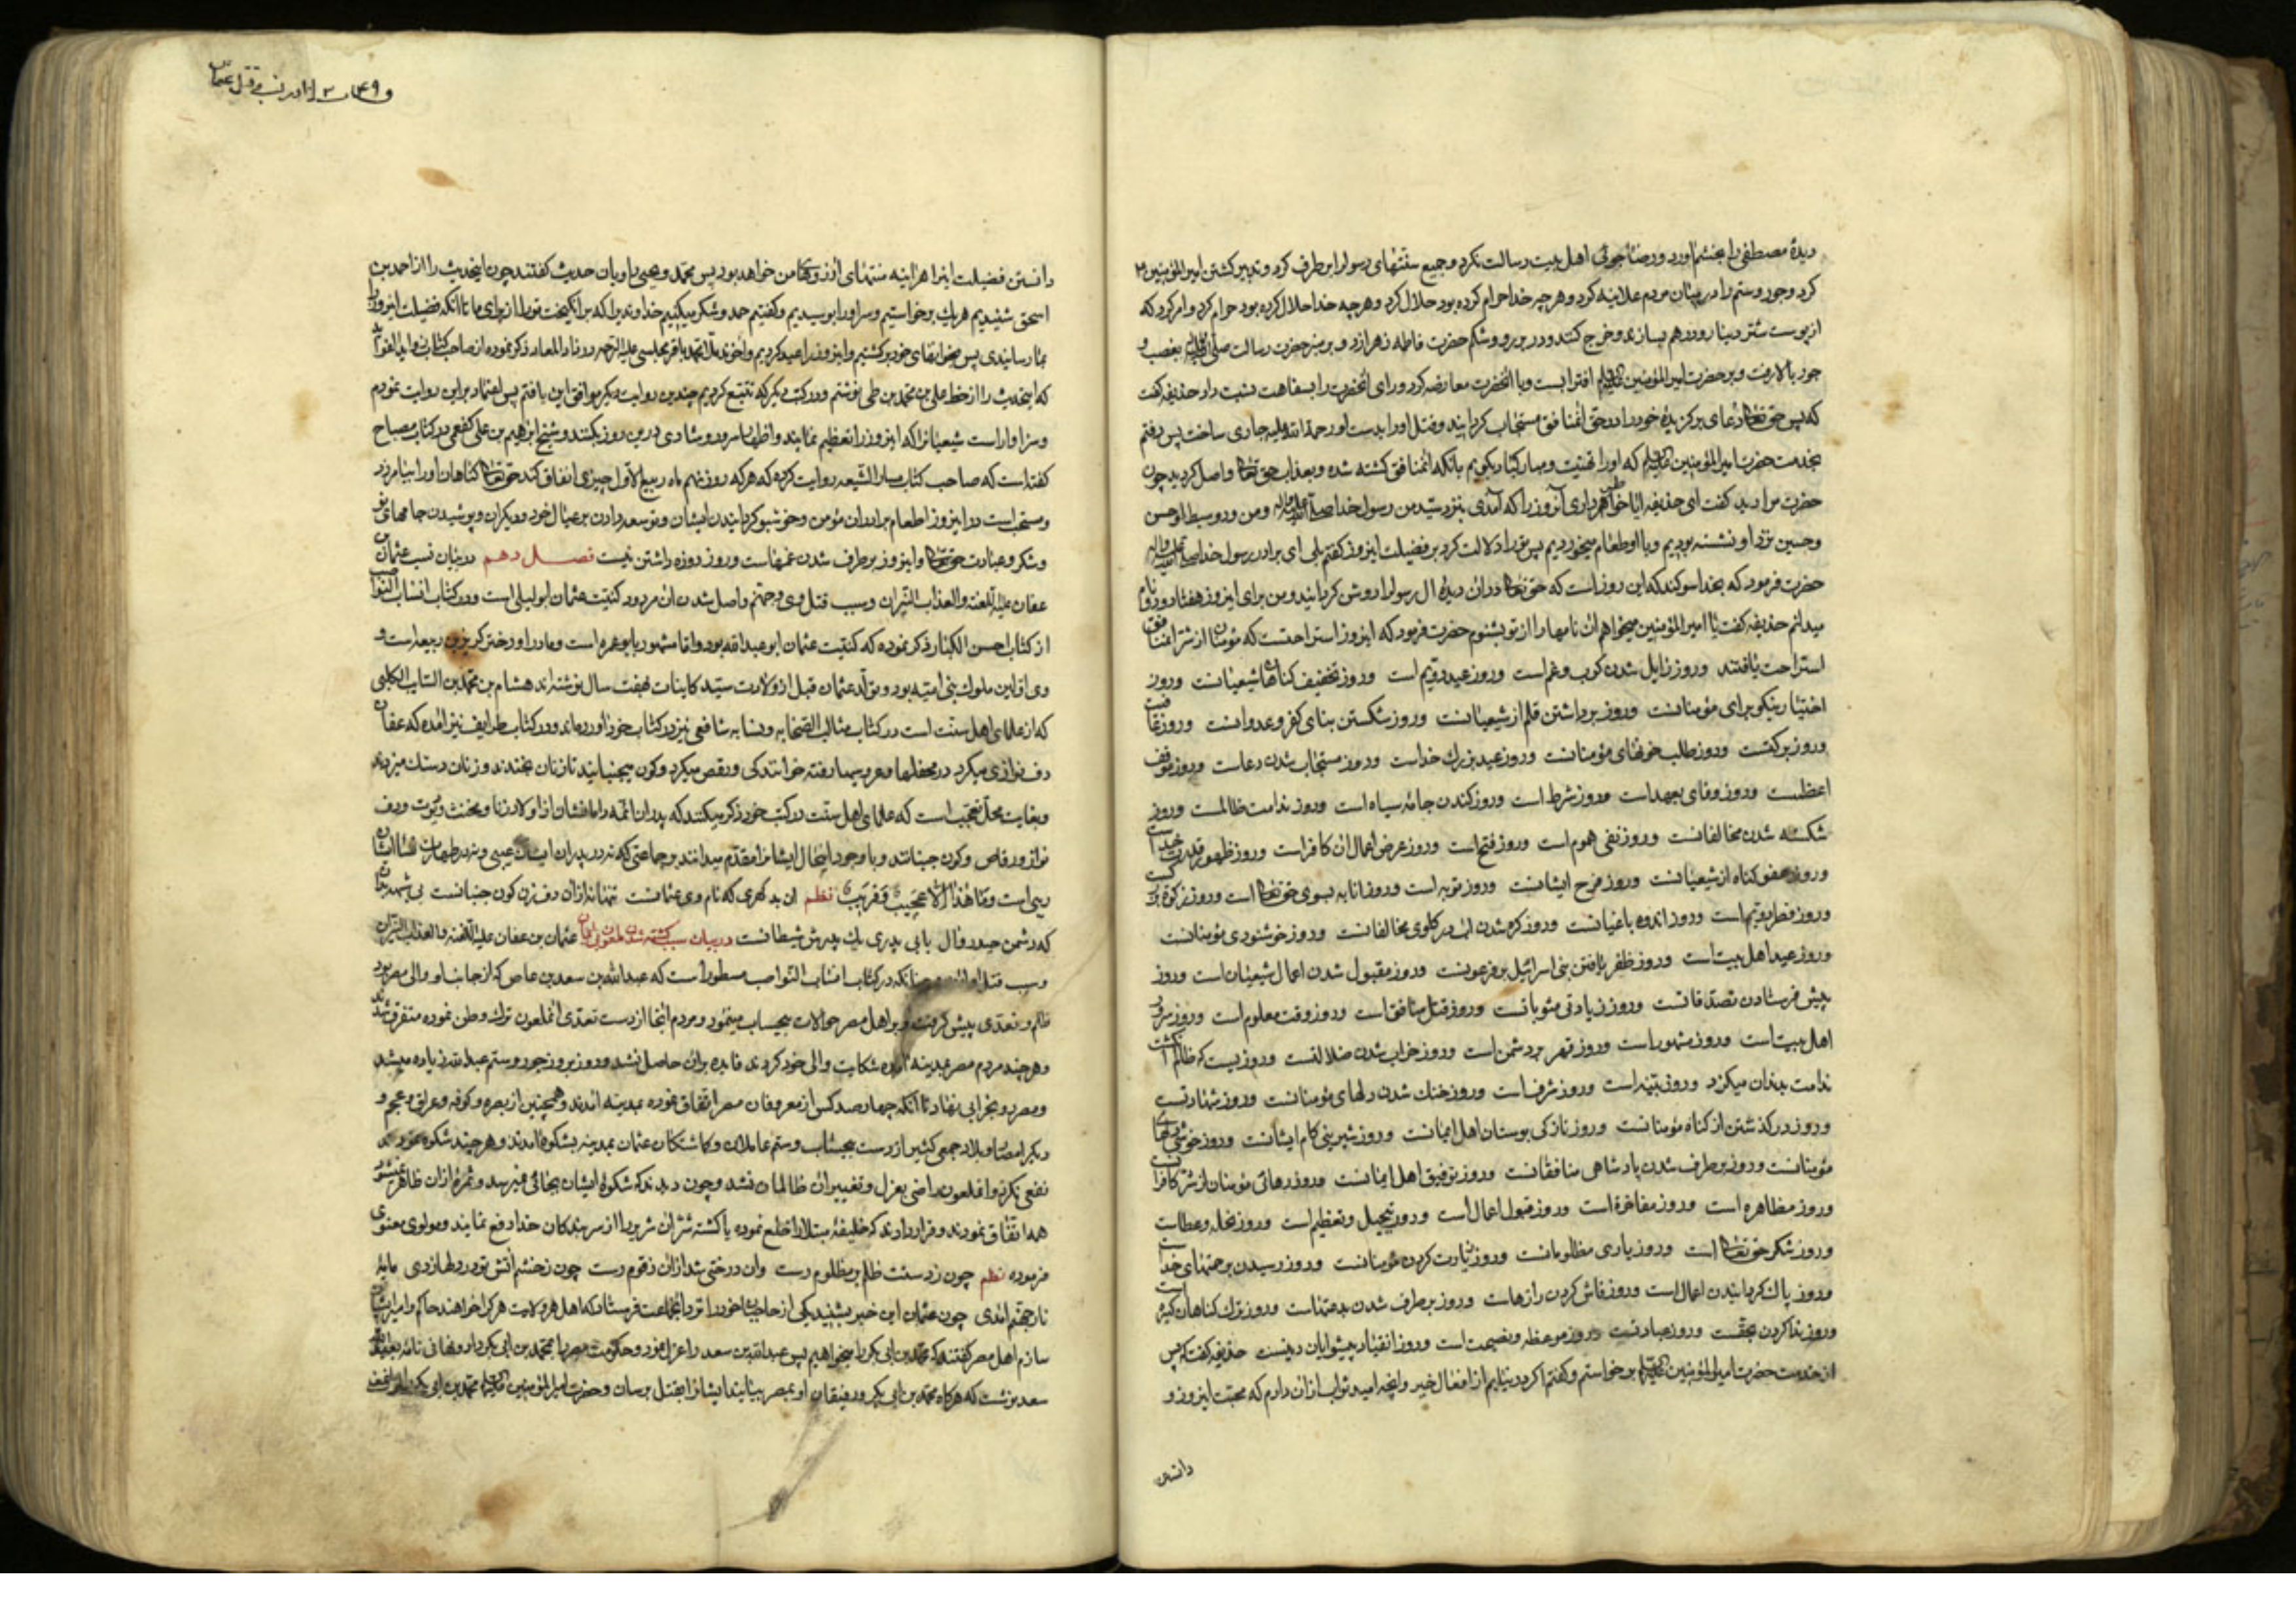 دیدهٔ مصطفی را بخشم آورد و رضاجوئی اهل بیت رسالت نکرد و جمیع سنتهای رسول را برطرف کرد و تدبیر کشتن امیرالمؤمنین
کرد و جور و ستم را در میان مردم علانیه کرد و هرچه خدا حرام کرده بود حلال کرد و هرچه خدا حلال کرده بود حرام کرد و امر کرد که
از پوست شتر دینار و درهم بسازند و خرج کنند و در بر رو و شکم حضرت فاطمه زهرا زد و بر منبر حضرت رسالت بغصب و
جور بالا رفت و بر حضرت امیرالمؤمنین افترا بست و با آنحضرت معارضه کرد و رای آنحضرت را بسفاهت نسبت داد حذیفه گفت
که پس حق تعالی دعای برگزیدهٔ خود را در حق آنمنافق مستجاب گردانید و قتل او را بدست او رحمة الله علیه جاری ساخت پس رفتم
بخدمت حضرت امیرالمؤمنین که او را تهنیت و مبارکباد بگویم بآنکه آنمنافق کشته شده و بعذاب حق تعالی واصل گردید چون
حضرت مرا دید گفت ای حذیفه ایا خاطر داری آنروز را که آمدی بنزد سید من رسول خدا و من و دو سبط او حسن
و حسین نزد او نشسته بودیم و با او طعام میخوردیم پس تو را دلالت کرد بر فضیلت اینروز گفتم بلی ای برادر رسول خدا
حضرت فرمود که بخدا سوکند که این روز است که حق تعالی در آن دیدهٔ ال رسول را روشن گردانید و من برای اینروز هفتاد و دو نام
میدانم حذیفه گفت یا امیرالمؤمنین میخواهم آن نامها را از تو بشنوم حضرت فرمود که اینروز استراحتست که مؤمنان از شر آن منافق
استراحت یافتند و روز زایل شدن کرب و غم است و روز عید دویم است و روز تخفیف گناهان شیعیانست و روز
اختیار نیکو برای مؤمنانست و روز برداشتن قلم از شیعیانست و روز شکستن بنای کفر و عدوانست و روز عافیت
و روز برکتست و روز طلب خونهای مؤمنانست و روز عید بزرک خداست و روز مستجاب شدن دعاست و روز موقف
اعظمست و روز وفای بعهد است و روز شرط است و روز کندن جامهٔ سیاه است و روز ندامت ظالمست و روز
شکسته شدن مخالفانست و روز نفی هموم است و روز فتح است و روز عرض اعمال آن کافر است و روز ظهور قدرت خداست
و روز عفو گناه از شیعیانست و روز فرح ایشانست و روز توبه است و روز انابه بسوی حق تعالی است و روز زکوة بزرگست
و روز فطر دویم است و روز اندوه باغیانست و روز گره شدن آب در گلوی مخالفانست و روز خوشنودی مؤمنانست
و روز عید اهل بیت است و روز ظفر یافتن بنی اسرائیل بر فرعونست و روز مقبول شدن اعمال شیعیان است و روز
پیش فرستادن تصدقاتست و روز زیادتی مثوباتست و روز قتل منافق است و روز وقت معلوم است و روز سرور
اهل بیت است و روز مشهود است و روز قهر بر دشمن است و روز خراب شدن ضلالتست و روزیست که ظالم انگشت
ندامت بدندان میگزد و روز تنبیه است و روز شرف است و روز خنک شدن دلهای مؤمنانست و روز شهادتست
و روز درگذشتن از گناه مؤمنانست و روز تازگی بوستان اهل ایمانست و روز شیرینی کام ایشانست و روز خوشی دلهای
مؤمنانست و روز برطرف شدن پادشاهی منافقانست و روز توفیق اهل ایمانست و روز رهائی مؤمنان از شر کافرانست
و روز مظاهره است و روز مفاخره است و روز قبول اعمال است و روز تبجیل و تعظیم است و روز نحله و عطاست
و روز شکر حق تعالی است و روز یاری مظلومانست و روز زیارت کردن مؤمنانست و روز رسیدن برحمتهای خداست
و روز پاک گردانیدن اعمال است و روز فاش کردن رازهاست و روز برطرف شدن بدعتهاست و روز ترک گناهان کبیره است
و روز ندا کردن بحقست و روز عبادتست و روز موعظه و نصیحت است و روز انقیاد پیشوایان دینست حذیفه گفت که پس
از خدمت حضرت امیرالمؤمنین برخواستم و گفتم اگر درنیابم از افعال خیر و آنچه امید ثواب از آن دارم که محبت اینروز و
دانستن
قتل عثمان
دانستن فضیلت اینرا هراینه منتهای ارزوهای من خواهد بود پس محمد و یحیی راویان حدیث گفتند چون اینحدیث را از احمد بن
اسحق شنیدیم هر یک برخواستیم و سر او را بوسیدیم و گفتیم حمد و شکر میکنیم خداوندیرا که برانگیخت تو را از برای ما تا آنکه فضیلت اینروز را
بما رسانیدی پس بخوانهای خود برگشتیم و اینروز را عید کردیم و آخوند ملا محمد باقر مجلسی علیه الرحمه در زاد المعاد ذکر نموده از صاحب کتاب
که اینحدیث را از خط علی بن محمد بن طی نوشتم و در کتب دیگر که تتبع کردیم چندین روایت دیگر موافق این یافتم پس اعتماد بر این روایت نمودم
و سزاوار است شیعیانرا که اینروز را تعظیم نمایند و اظهار سرور و شادی در این روز بکنند و شیخ ابراهیم بن علی کفعمی در کتاب مصباح
گفته است که صاحب کتاب مسار الشیعه روایت کرده که هر که روز نهم ماه ربیع الاول چیزی انفاق کند حق تعالی گناهان او را بیامرزد
و مستحب است در اینروز اطعام برادران مؤمن و خوشبو گردانیدن ایشان و توسعه دادن بر عیال خود و دیگران و پوشیدن جامهای نو
و شکر و عبادت حق تعالی و اینروز برطرف شدن غمهاست و روز روزه داشتن نیست فصل دهم در بیان نسب عثمان بن
عفان علیه اللعنه و العذاب النیران و سبب قتل وی و جهنم واصل شدن آن مردود کنیت عثمان ابو لیلی است و در کتاب انساب النواصب
از کتاب احسن الکبار ذکر نموده که کنیت عثمان ابو عبدالله بود و اما مشهور بابو عمره است و مادر او دختر کریز بن ربیعه است و
وی اولین ملوک بنی امیه بود و تولد عثمان قبل از ولادت سید کاینات بهفت سال نوشته اند هشام بن محمد بن السایب الکلبی
که از علمای اهل سنت است در کتاب مثالب الصحابه و نسابه شافعی نیز در کتاب خود آورده اند و در کتاب طرایف نیز آمده که عفان
دف نوازی میکرد در محفلها و عروسیها رفته خوانندگی و رقص میکرد و کون میجنبانید تا زنان بخندند و زنان دستک میزدند
و بغایت محل تعجب است که علمای اهل سنت در کتب خود ذکر میکنند که پدران ائمه و امامشان از اولاد زنا و مخنث و دیوث و دف
نواز و رقاص و کون جنبانند و با وجود اینحال ایشانرا مقدم میدانند بر جماعتی که نه در پدران ایشان عیبی و نه در طهارت نشأ ایشان
ریبی است و ما هذا الا عجیب و غریب نظم ان بد گهری که نام وی عثمانست تنها نه از آن دف زن کون جنبانست بی شبهه بدان
که دشمن حیدر و آل یا بی پدری یک پدرش شیطانست در بیان سبب کشته شدن ملعون بی ایمان عثمان بن عفان علیه اللعنه و العذاب النیران
و سبب قتل او چنانکه در کتاب انساب النواصب مسطور است که عبدالله بن سعد بن عاص که از جانب او والی مصر بود
ظلم و تعدی پیش گرفت و بر اهل مصر حوالات بیحساب مینمود و مردم آنجا از دست تعدی آنملعون ترک وطن نموده متفرق شدند
و هرچند مردم مصر بمدینه آمده شکایت والی خود کردند فایده بر آن حاصل نشد و روز بروز جور و ستم عبدالله زیاده میشد
و مصر رو بخرابی نهاد تا آنکه چهارصد کس از معروفان مصر اتفاق نموده بمدینه آمدند و همچنین از بصره و کوفه و عراق و عجم و
دیگر امصار و بلاد جمعی کثیر از دست بیحساب و ستم عاملان و گماشتگان عثمان بمدینه بشکوه آمدند و هرچند شکوه نمودند
نفعی نکرد و آنملعون راضی بعزل و تغییر آن ظالمان نشد و چون دیدند که شکوهٔ ایشان بجائی نمیرسد و ثمرهٔ از آن ظاهر نمیشود
همه اتفاق نمودند و قرار دادند که خلیفهٔ مبتلا را قلع نموده یا کشته شر آن شریر را از سر بندگان خدا دفع نمایند و مولوی معنوی
فرموده نظم چون ز دستت ظلم بر مظلوم رست وان درختی شد از آن زقوم رست چون ز خشم آتش تو در دلها زدی مایهٔ
نار جهنم آمدی چون عثمان این خبر بشنید یکی از حاجبان خود را نزد آنجماعت فرستاد که اهل هر ولایت هر که را خواهند حاکم و امیر ایشان
سازم اهل مصر گفتند که محمد بن ابی بکر را میخواهیم پس عبدالله بن سعد را عزل نمود و حکومت مصر را بمحمد بن ابی بکر داد و نهانی نامهٔ بعبدالله
سعد نوشت که هرگاه محمد بن ابی بکر و رفیقان او بمصر بیایند ایشانرا بقتل برسان و حضرت امیرالمؤمنین محمد بن ابی بکر را